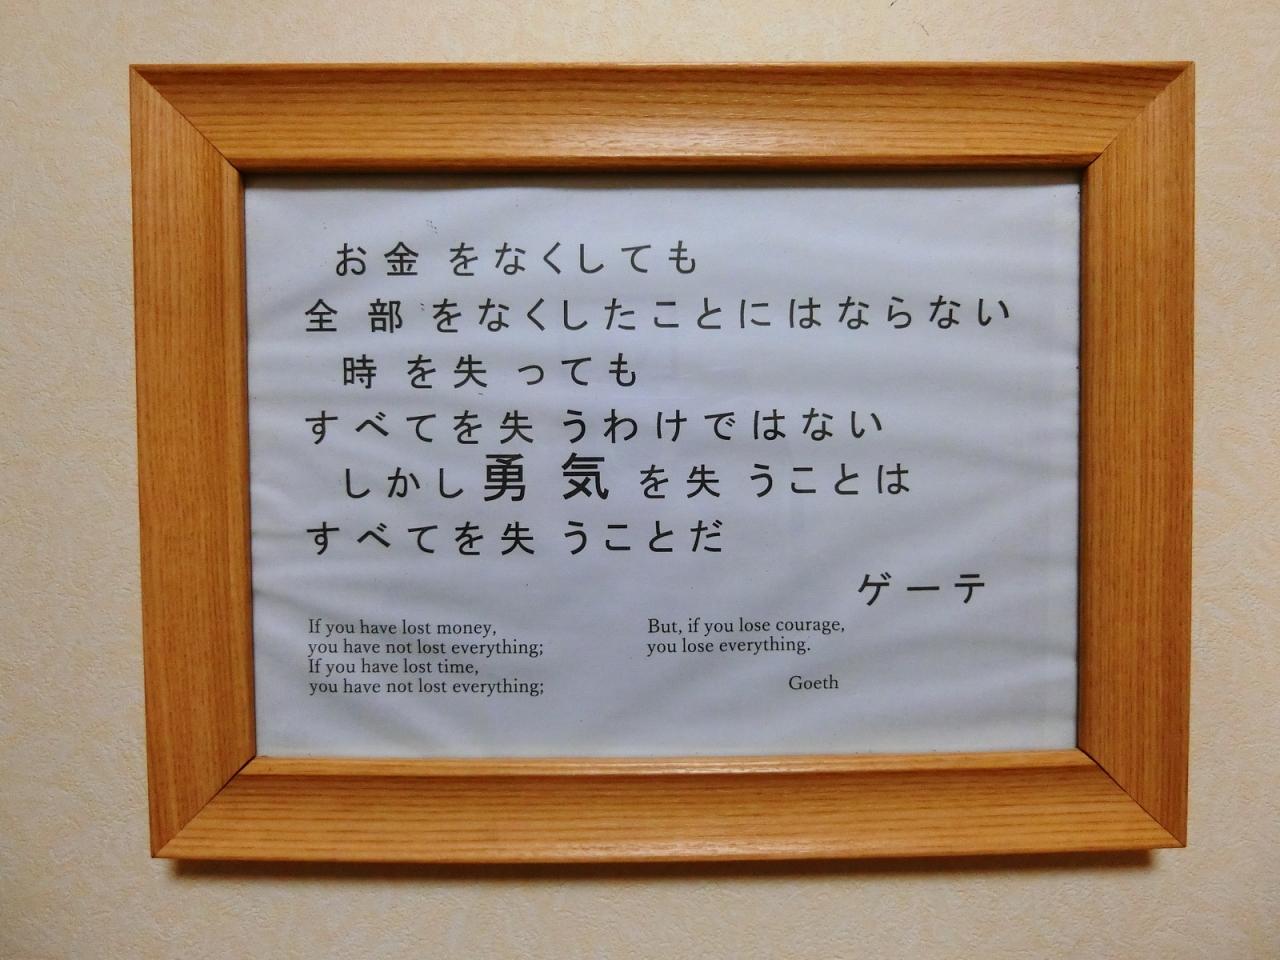 お金をなくしても
全部をなくしたことにはならない
時を失っても
すべてを失うわけではない
しかし勇気を失うことは
すべてを失うことだ
ゲーテ
If you have lost money,
you have not lost everything;
If you have lost time,
you have not lost everything;
But, if you lose courage,
you lose everything.
Goeth